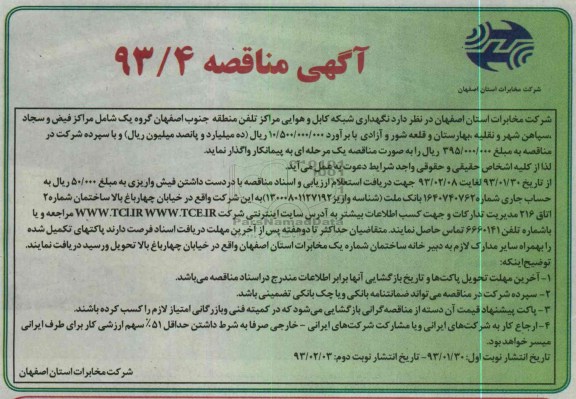 آگهی مناقصه ۹۳/۴
شرکت مخابرات استان اصفهان
شرکت مخابرات استان اصفهان در نظر دارد نگهداری شبکه کابل و هوایی مراکز تلفن منطقه جنوب اصفهان گروه یک شامل مراکز فیض و سجاد
،سپاهن شهر و نقلیه ،بهارستان و قلعه شور و آزادی با برآورد ۱۰/۵۰۰/۰۰۰/۰۰۰ ریال (ده میلیارد و پانصد میلیون ریال) و با سپرده شرکت در
مناقصه به مبلغ ۳۹۵/۰۰۰/۰۰۰ ریال را به صورت مناقصه یک مرحله ای به پیمانکار واگذار نماید.
لذا از کلیه اشخاص حقیقی و حقوقی واجد شرایط دعوت بعمل می آید
از تاریخ ۹۳/۰۱/۳۰ لغایت ۹۳/۰۲/۰۸ جهت دریافت استعلام ارزیابی و اسناد مناقصه با در دست داشتن فیش واریزی به مبلغ ۵۰/۰۰۰ ریال به
حساب جاری شماره ۱۶۴۰۷۴۰۷۶۲ بانک ملت (شناسه واریز ۱۳۰۰۰۸۰۱۱۲۷۱۹۲) به این شرکت واقع در خیابان چهارباغ بالا ساختمان شماره ۲
اتاق ۲۱۶ مدیریت تدارکات و جهت کسب اطلاعات بیشتر به آدرس سایت اینترنتی شرکت WWW.TCI.IR WWW.TCE.IR مراجعه و یا
با شماره تلفن ۶۶۶۰۱۴۱ تماس حاصل نمایند. متقاضیان حداکثر تا دو هفته پس از آخرین مهلت دریافت اسناد فرصت دارند پاکتهای تکمیل شده
را بهمراه سایر مدارک لازم به دبیر خانه ساختمان شماره یک مخابرات استان اصفهان واقع در خیابان چهارباغ بالا تحویل ورسید دریافت نمایند.
توضیح اینکه:
۱- آخرین مهلت تحویل پاکت ها و تاریخ بازگشایی آنها برابر اطلاعات مندرج در اسناد مناقصه می باشد.
۲- سپرده شرکت در مناقصه می تواند ضمانتنامه بانکی و یا چک بانکی تضمینی باشد.
۳- پاکت پیشنهاد قیمت آن دسته از مناقصه گرانی بازگشایی می شود که در کمیته فنی وبازرگانی امتیاز لازم را کسب کرده باشند.
۴- ارجاع کار به شرکت های ایرانی و یا مشارکت شرکت های ایرانی - خارجی صرفا به شرط داشتن حداقل ۵۱٪ سهم ارزشی کار برای طرف ایرانی
میسر خواهد بود.
تاریخ انتشار نوبت اول: ۹۳/۰۱/۳۰- تاریخ انتشار نوبت دوم: ۹۳/۰۲/۰۳
شرکت مخابرات استان اصفهان